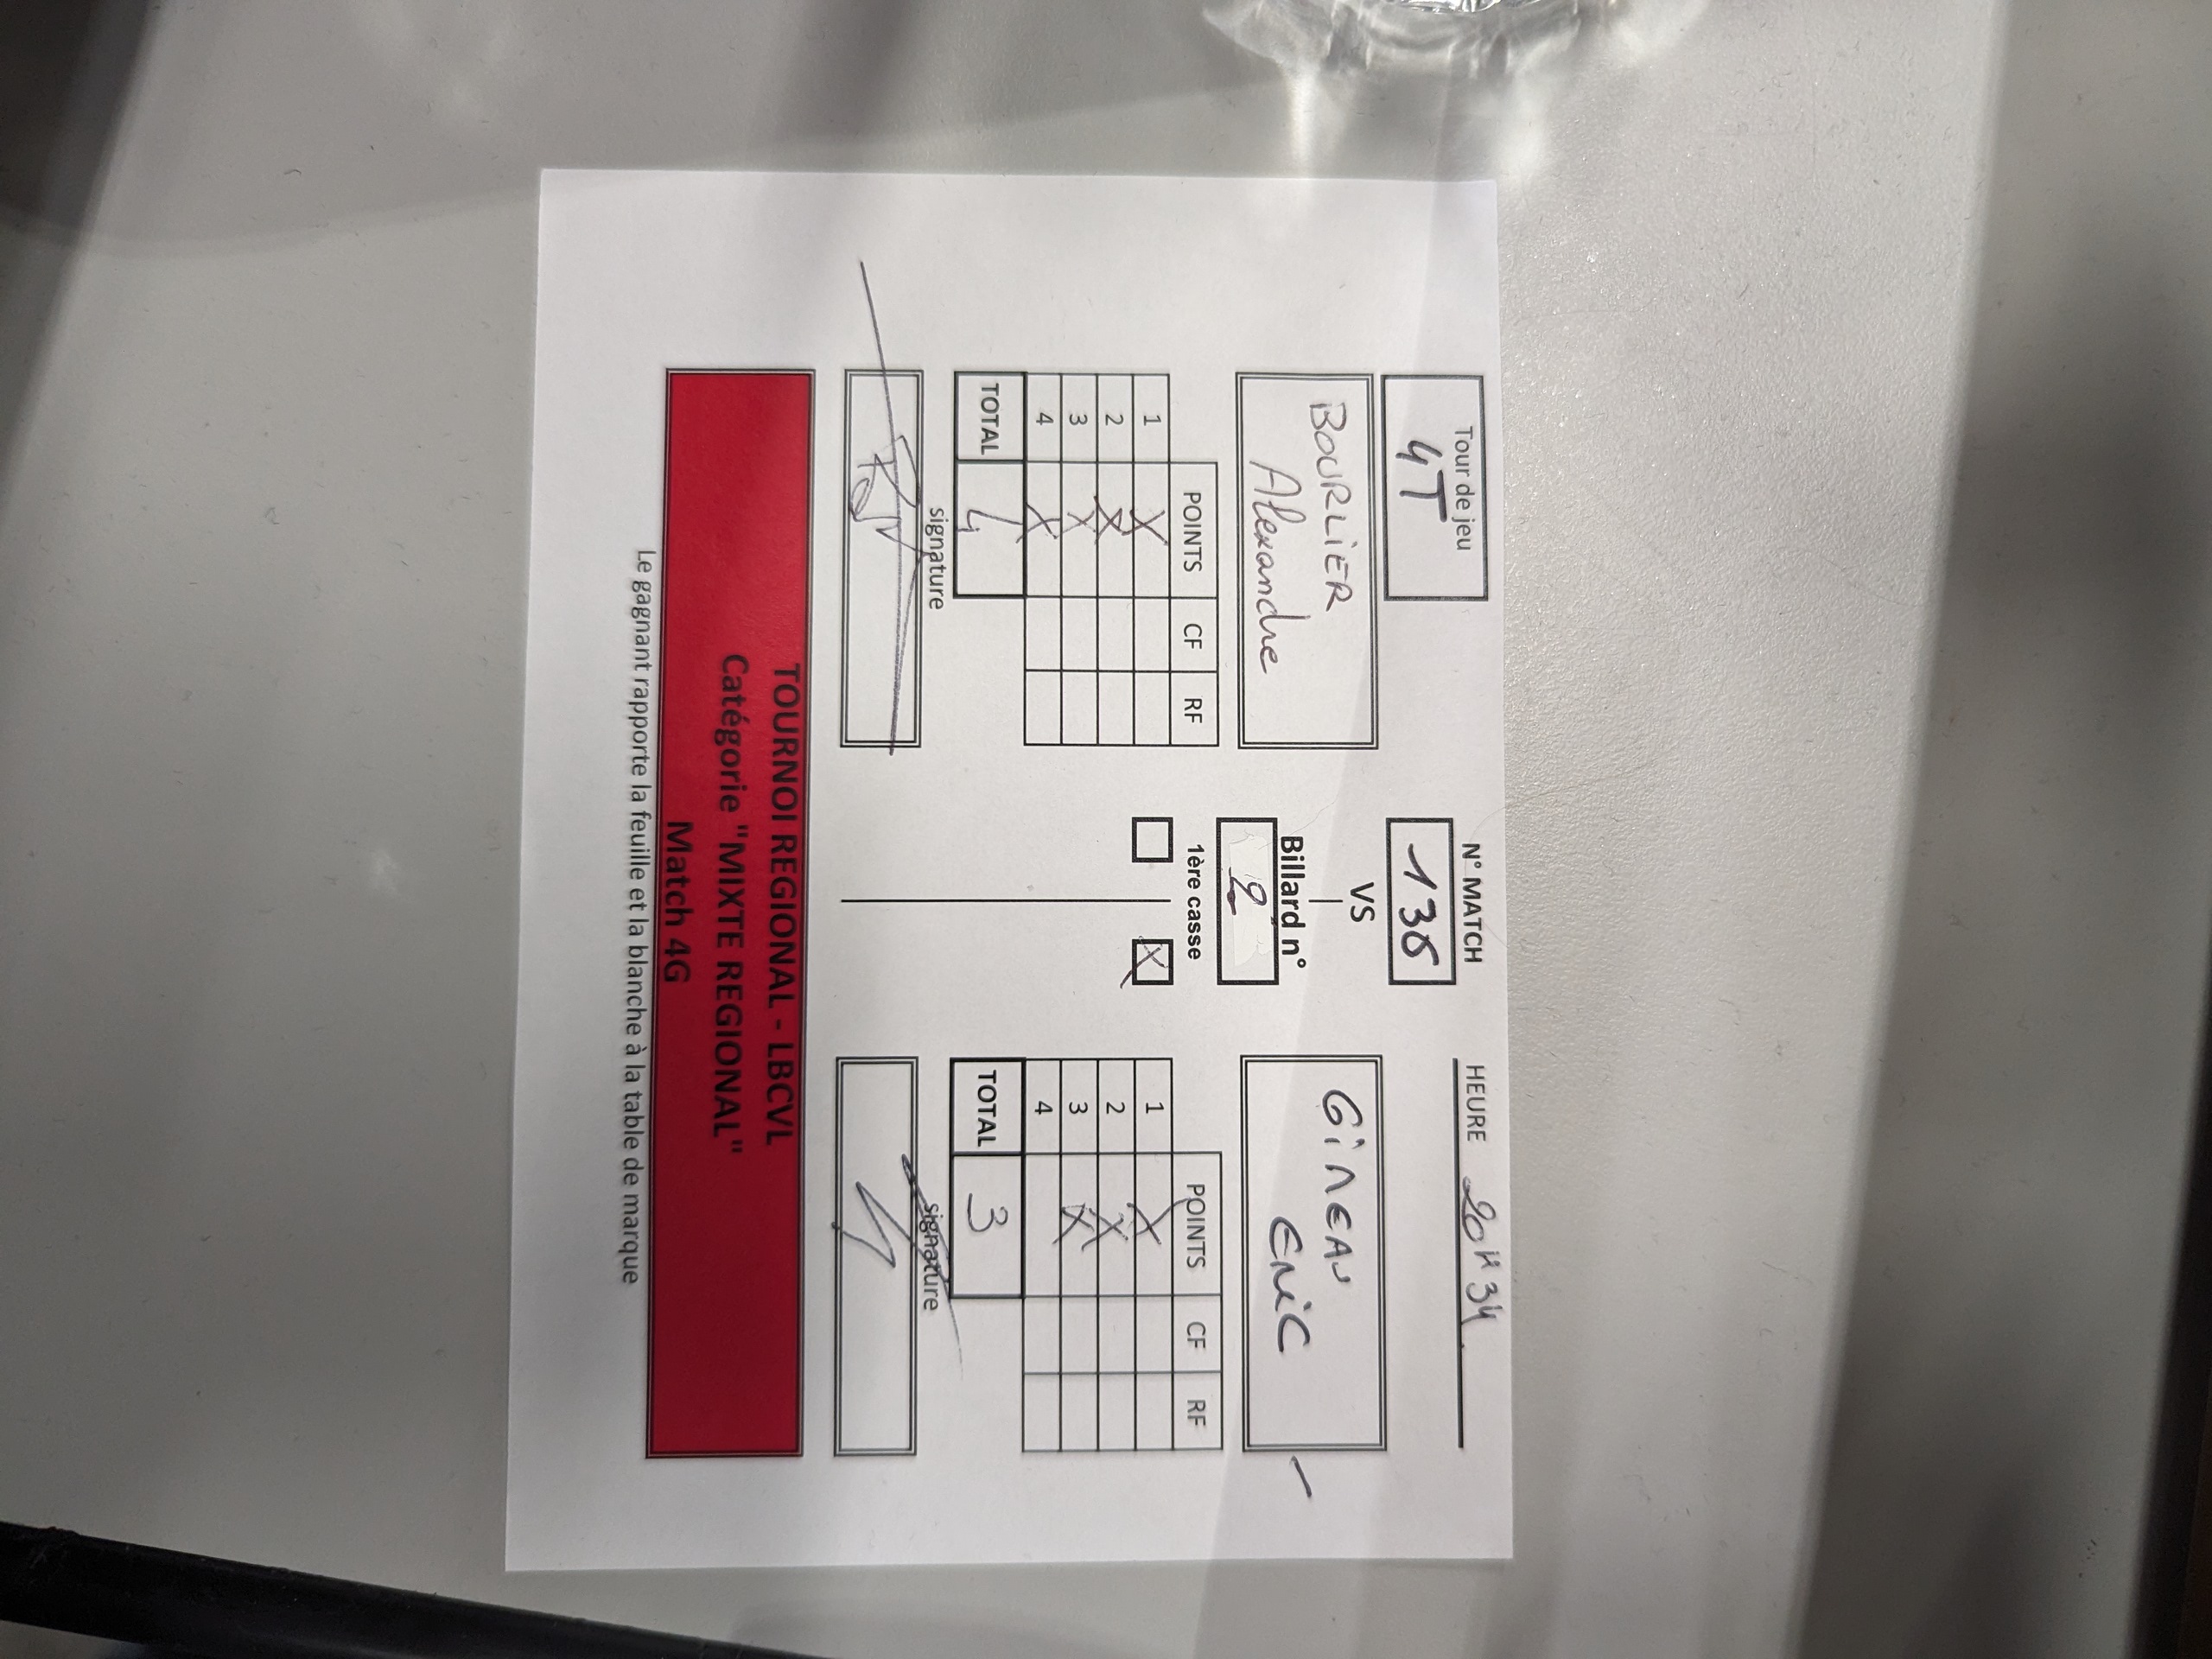 Tour de jeu
4T
N° MATCH
136
HEURE 20H34
BOURLIER
Alexandre
VS
GiNEAU
ERiC
Billard n°
2
POINTS CF RF
1 X
2 X
3 X
4 X
TOTAL 4
1ère casse
X
POINTS CF RF
1 X
2 X
3 X
4
TOTAL 3
signature
signature
TOURNOI REGIONAL - LBCVL
Catégorie "MIXTE REGIONAL"
Match 4G
Le gagnant rapporte la feuille et la blanche à la table de marque